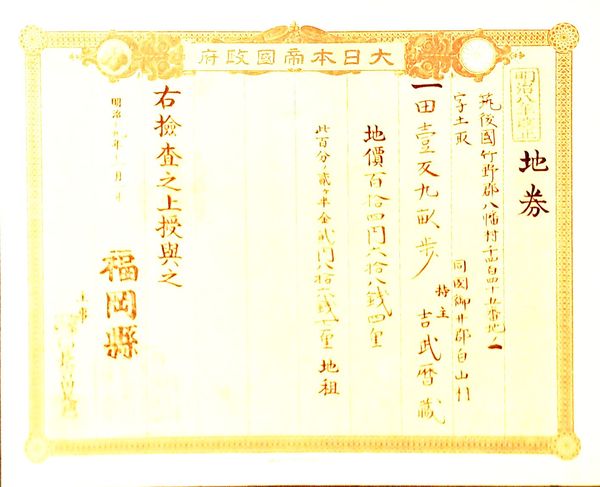 大日本帝國政府
地券
筑後國竹野郡八幡村千四百四十五番地ノ一
字土取
同國御井郡白山村
一田壹反九畝歩
持主 吉武暦蔵
地價百拾四円六拾八銭四厘
此百分ノ貳ヶ半金貳円八拾六銭七厘 地租
右檢査之上授與之
明治
福岡縣